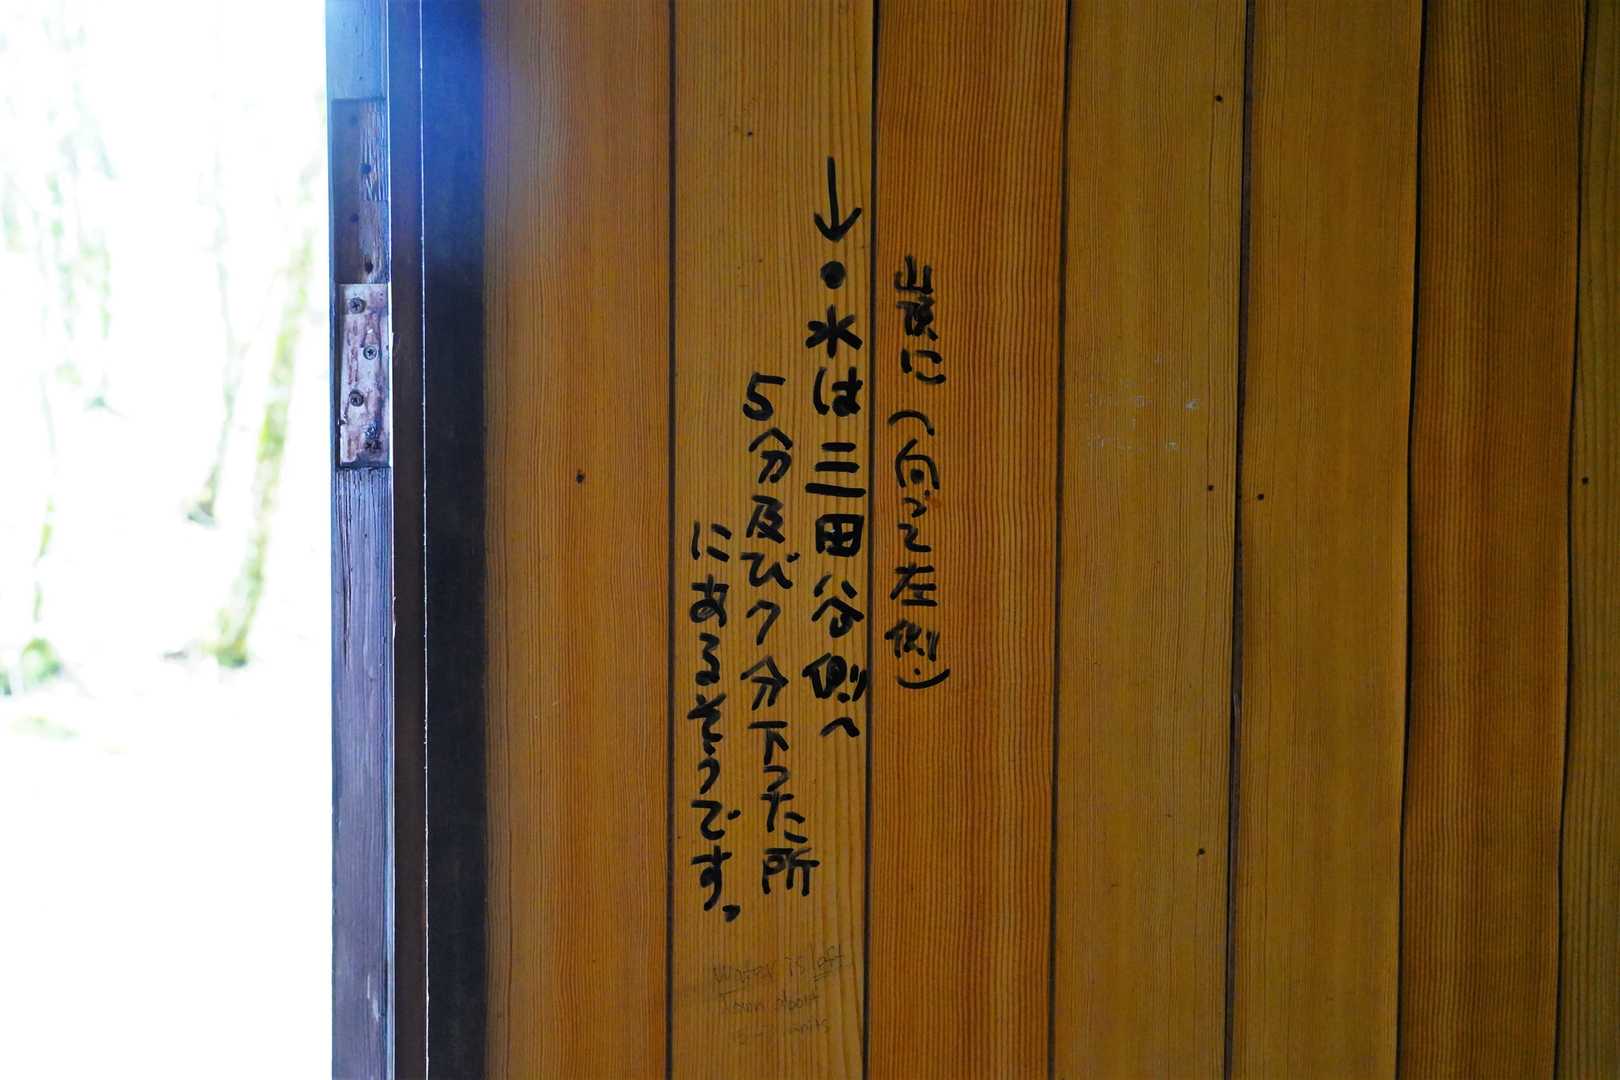 山頂に(向って左側)
↓
・水は三田谷側へ
5分及び7分下った所
にあるそうです。
Water is left
down about
5-7 mnits